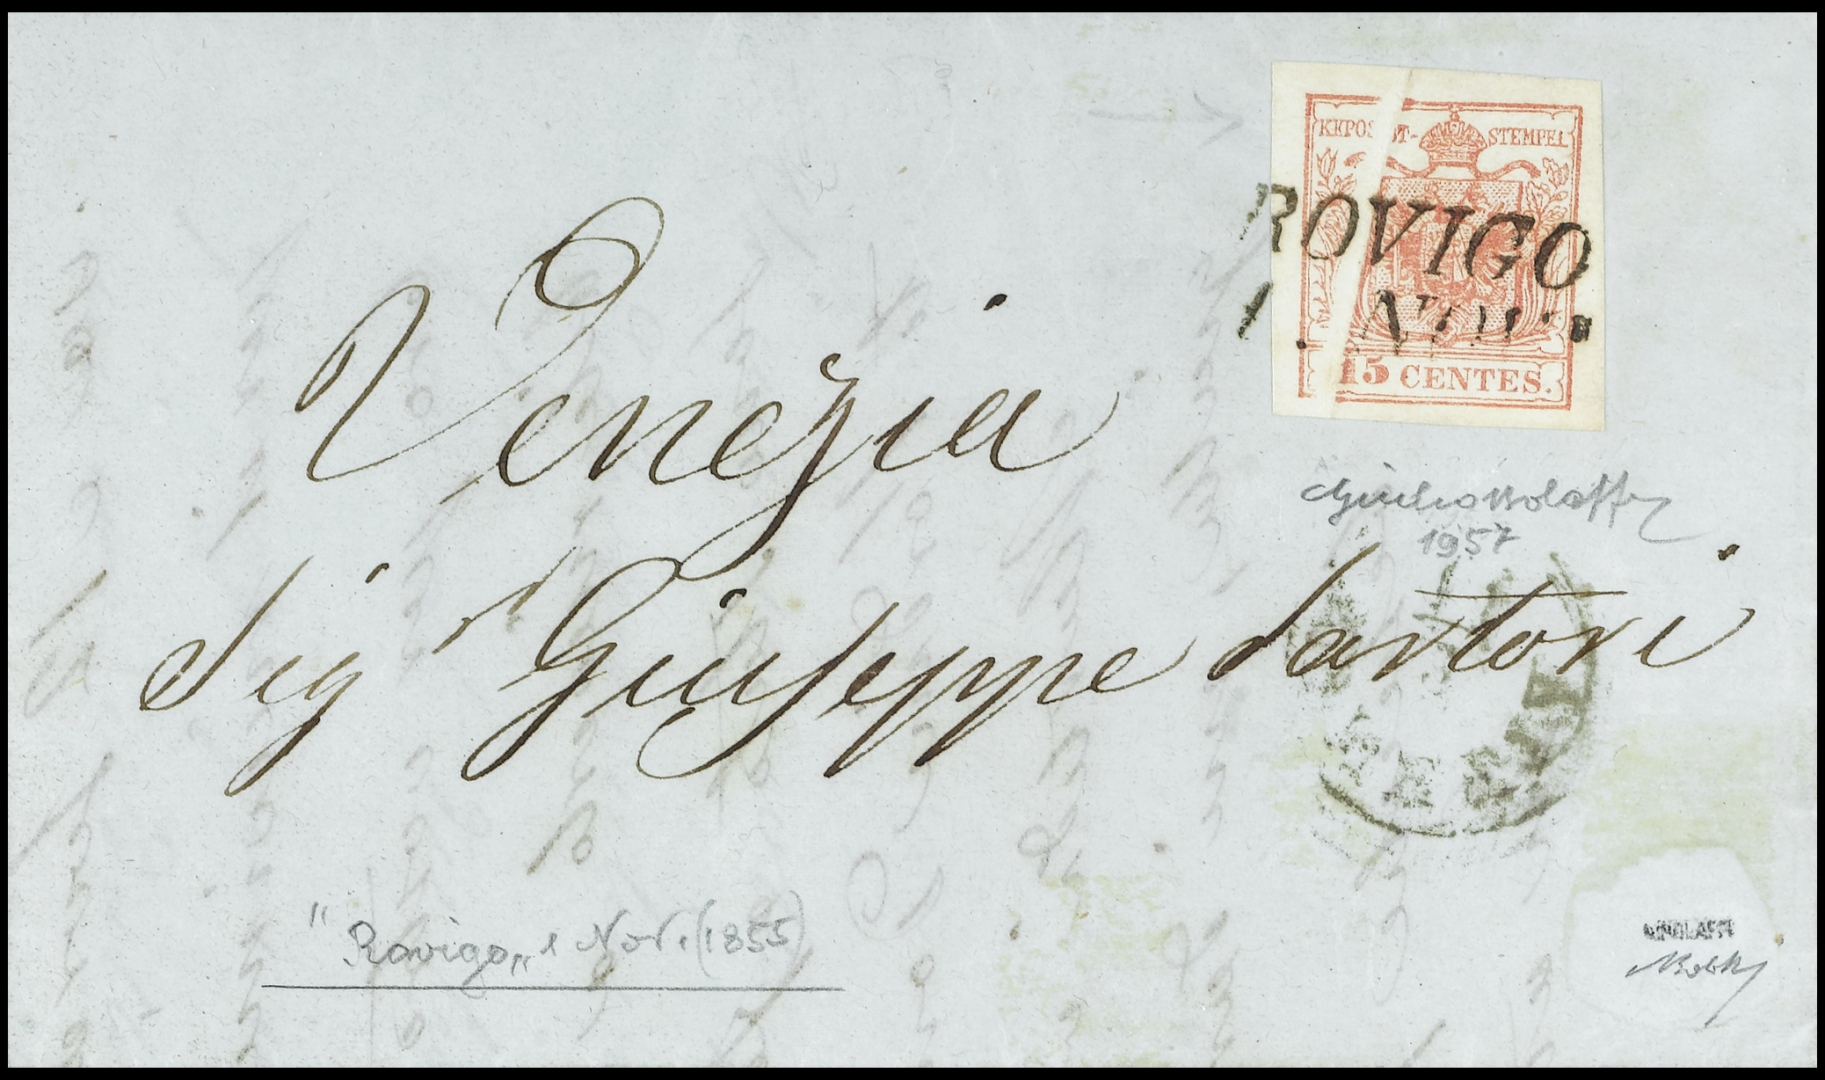 KKPOS ST- STEMPEL
ROVIGO
1. NOV:
15 CENTES.
Venezia
Giulio Bolaffi
1957
Sigr Giuseppe Sartori
"Rovigo„ 1 Nov. (1855)